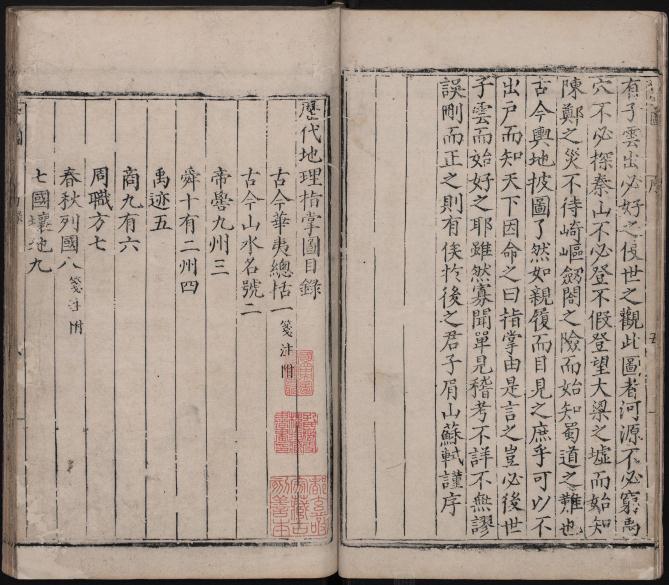 有子雲出必好之後世之觀此圖者河源不必窮禹
穴不必探秦山不必登不假登望大梁之墟而始知
陳鄭之災不待崎嶇劔閣之險而始知蜀道之難也
古今輿地披圖了然如親履而目見之庶乎可以不
出戶而知天下因命之曰指掌由是言之豈必後世
子雲而始好之耶雖然寡聞單見稽考不詳不無謬
誤刪而正之則有俟於後之君子眉山蘇軾謹序
歷代地理指掌圖目錄
古今華夷總括一 箋注附
古今山水名號二
帝嚳九州三
舜十有二州四
禹迹五
商九有六
周職方七
春秋列國八 箋注附
七國壤地九